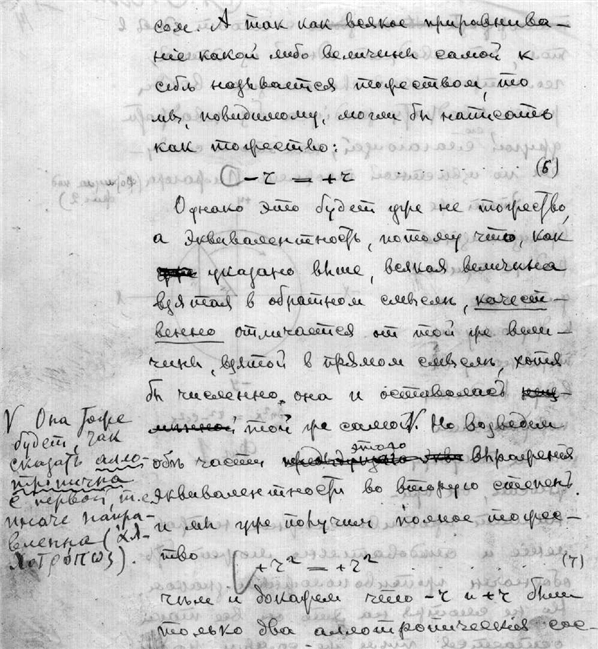 сом. А так как всякое приравнива-
ніе какой либо величины самой к
себѣ называется тожеством, то
мы, повидимому, могли бы написать
как тожество:
− r = + r . . . . . . . (6)
Однако это будет уже не тожество,
а эквивалентность, потому что, как
указано выше, всякая величина
взятая в обратном смыслѣ, качест-
венно отличается от той же вели-
чины, взятой в прямом смыслѣ, хотя
бы численно она и оставалась
той же самой V. Но возведем
обѣ части этого выраженія
эквивалентности во вторую степень
и мы уже получим полное тожес-
тво
+ r² = + r² . . . . . . (7)
чѣм и докажем что − r и + r были
только два аллотропическія сос-
V Она тоже
будет, так
сказать алло-
тропична
с первой, т.е.
иначе напра-
вленна (ἀλ-
λότροπως).